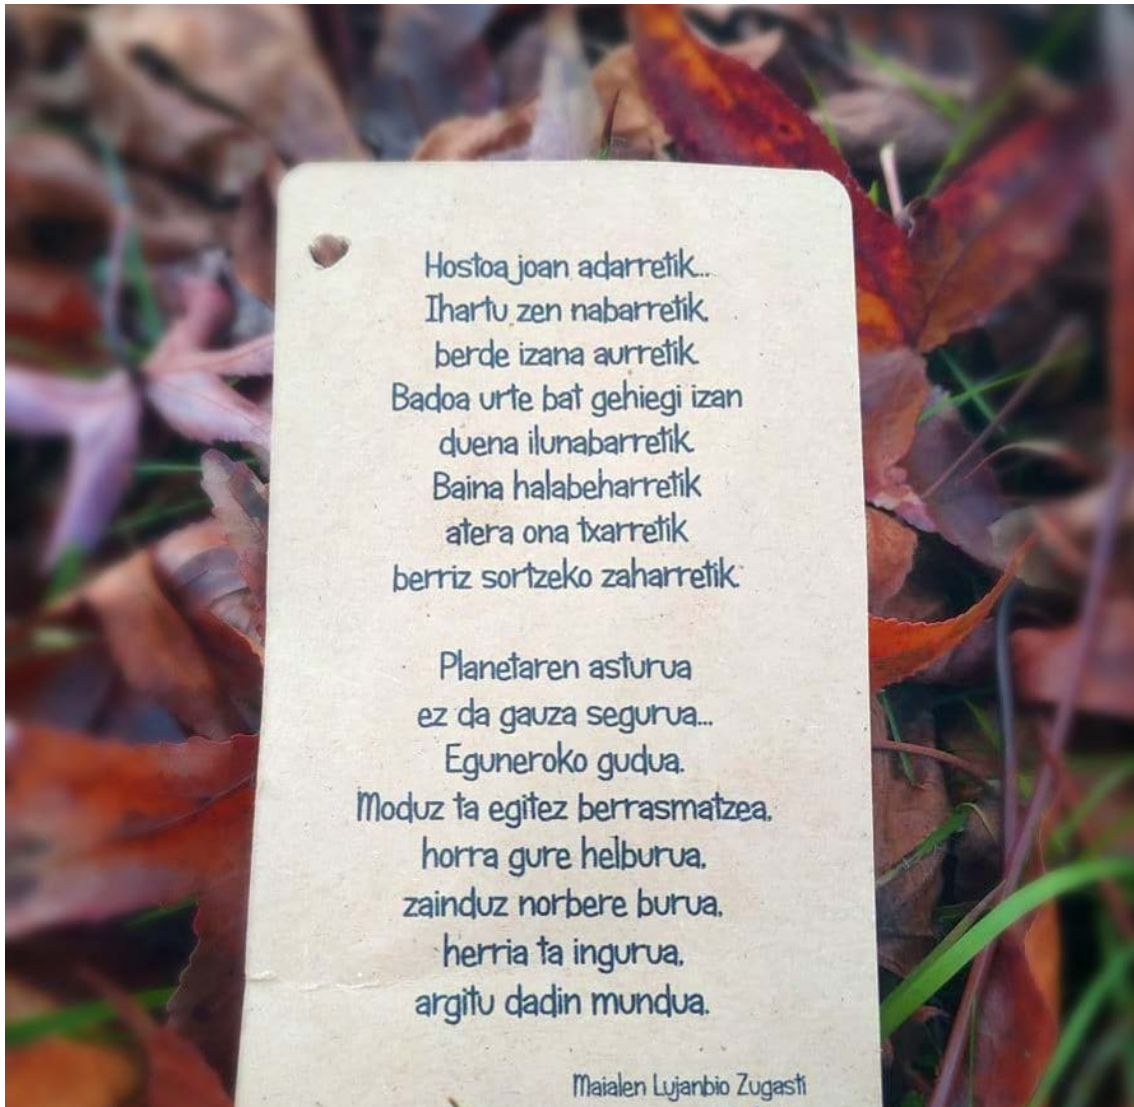 Hostoa joan adarretik...
Ihartu zen nabarretik,
berde izana aurretik.
Badoa urte bat gehiegi izan
duena ilunabarretik.
Baina halabeharretik
atera ona txarretik
berriz sortzeko zaharretik.
Planetaren asturua
ez da gauza segurua...
Eguneroko gudua.
Moduz ta egitez berrasmatzea,
horra gure helburua,
zainduz norbere burua,
herria ta ingurua,
argitu dadin mundua.
Maialen Lujanbio Zugasti